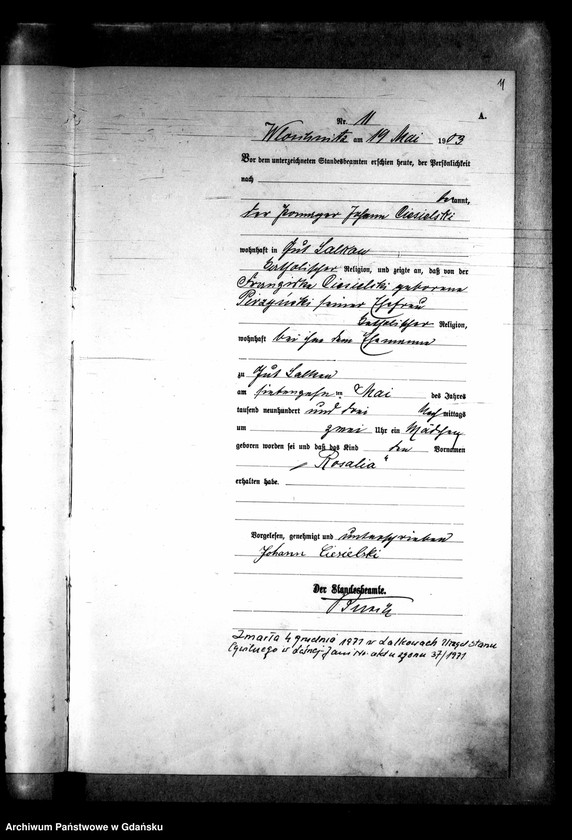 11
A.
Nr. 11
am 19 Mai 1903
Vor dem unterzeichneten Standesbeamten erschien heute, der Persönlichkeit
nach
bekannt,
der Johann Ciesielski
wohnhaft in Gut Lalkau
katholischer Religion, und zeigte an, daß von der
Franziska Ciesielski geborene
seiner Ehefrau
katholischer Religion,
wohnhaft bei ihm dem Ehemanne
zu Gut Lalkau
am siebenzehnten Mai des Jahres
tausend neunhundert und drei Nachmittags
um zwei Uhr ein Mädchen
geboren worden sei und daß das Kind den Vornamen
„Rosalia“
erhalten habe.
Vorgelesen, genehmigt und unterschrieben
Johann Ciesielski
Der Standesbeamte.
Zmarła 4 grudnia 1971 w Lalkowach Urząd Stanu
Cywilnego w Leśnej Jani Nr. aktu zgonu 37/1971
Archiwum Państwowe w Gdańsku